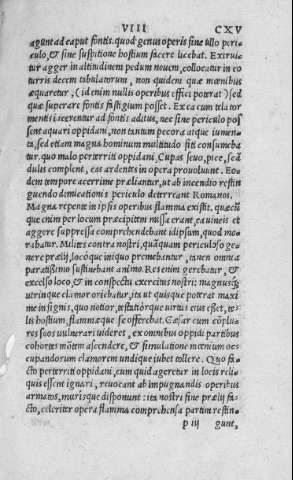 VIII CXV
agunt ad caput fontis. quod genus operis sine ullo peri-
culo, & sine suspitione hostium facere licebat. Exstrui-
tur agger in altitudinem pedum nouem, collocatur in eo
turris decem tabulatorum, non quidem quæ mœnibus
æquaretur, (id enim nullis operibus effici poterat) sed
quæ superare fontis fastigium posset. Ex ea cum tela tor
mentis iacerentur ad fontis aditus, nec sine periculo pos
sent aquari oppidani, non tantum pecora atque iumen-
ta, sed etiam magna hominum multitudo siti consumeba
tur. quo malo perterriti oppidani, Cupas seuo, pice, scan
dulis complent, eas ardentes in opera prouoluunt. Eo-
dem tempore acerrime præliantur, ut ab incendio restin
guendo dimicationis periculo deterreant Romanos.
Magna repente in ipsis operibus flamma existit. quæcun
que enim per locum præcipitem missa erant, ea uineis et
aggere suppressa comprehendebant id ipsum, quod mo-
rabatur. Milites contra nostri, quāquam periculoso ge-
nere prælij, locoque iniquo premebantur, tamen omnia
paratissimo sustinebant animo. Res enim gerebatur, &
excelso loco, & in conspectu exercitus nostri: magnusque
utrinque clamor oriebatur, ita ut quisque poterat maxi
me insignis, quo notior, testatiorque uirtus eius esset, te-
lis hostium, flammæque se offerebat. Cæsar cum cōplu-
res suos uulnerari uideret, ex omnibus oppidi partibus
cohortes mōtem ascendere, & simulatione mœnium oc
cupandorum clamorem undique iubet tollere. Quo fa-
cto perterriti oppidani, cum quid ageretur in locis reli-
quis essent ignari, reuocant ab impugnandis operibus
armatos, murisque disponunt: ita nostri fine prælij fa-
cto, celeriter opera flamma comprehensa partim restin-
p iij gunt,